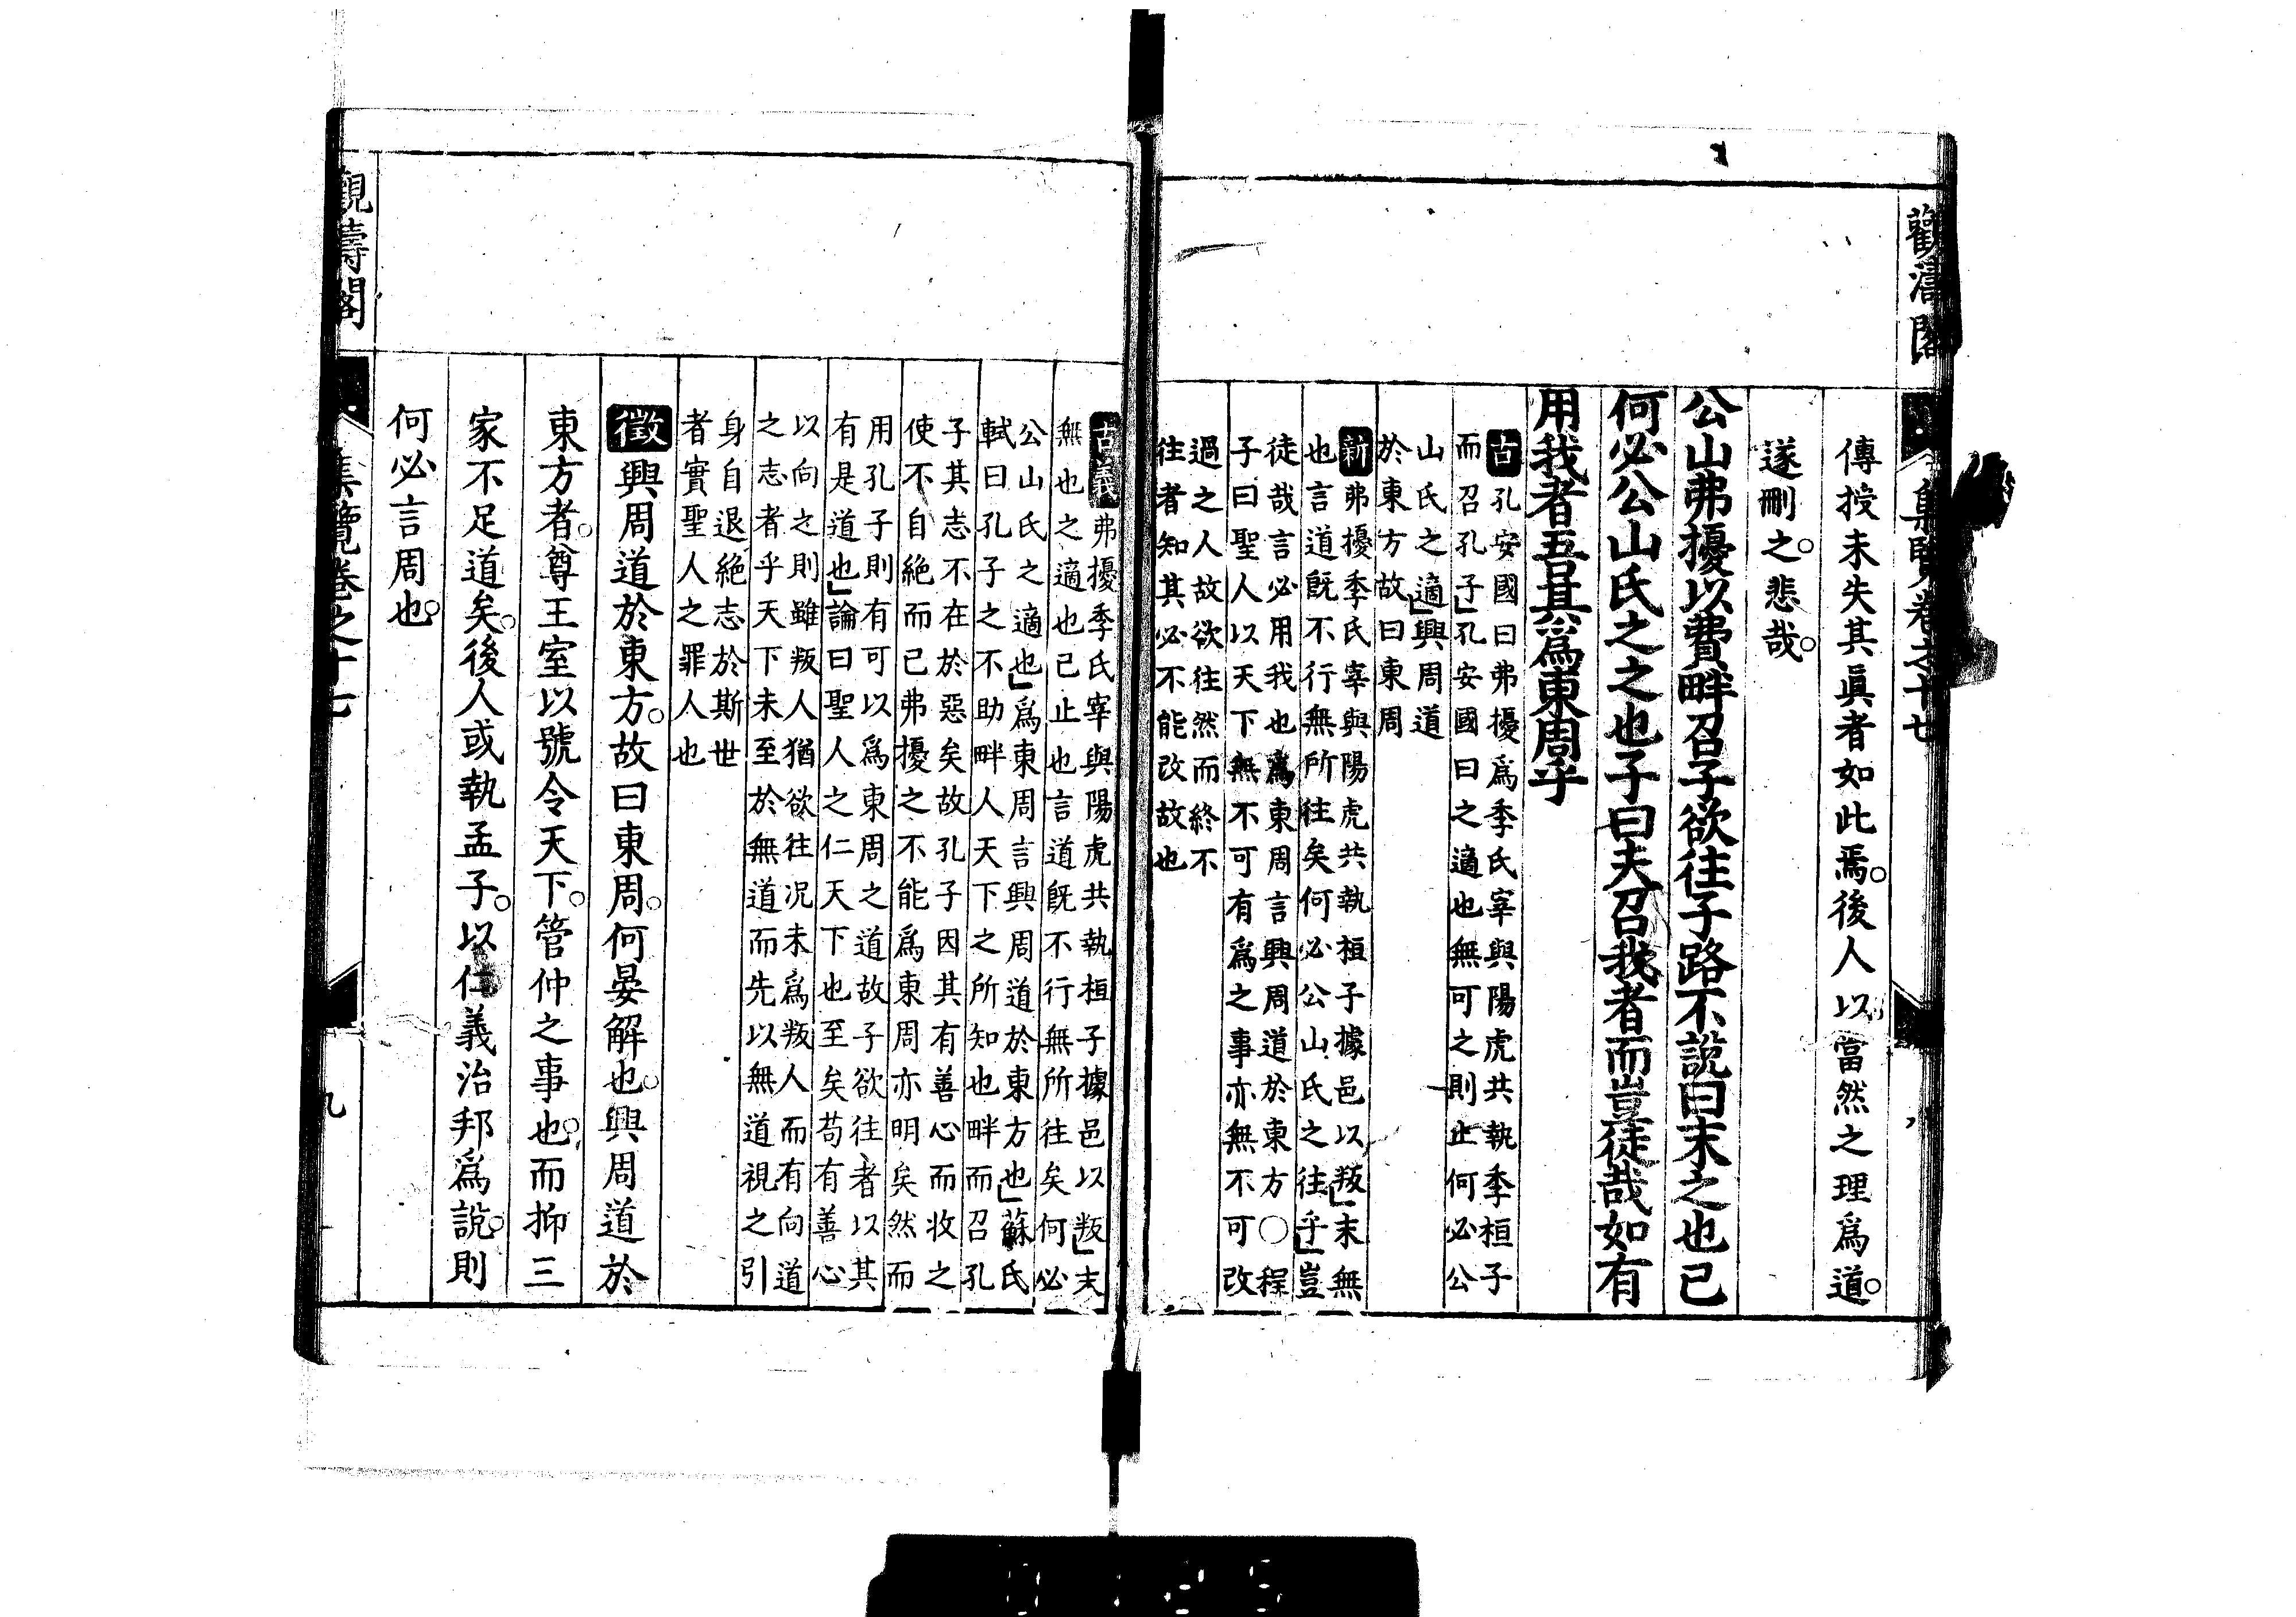 觀濤閣
集覽卷之十七
傳授未失其眞者如此焉。後人以當然之理爲道。
遂刪之。悲哉。
公山弗擾以費畔召子欲往子路不說曰末之也已
何必公山氏之之也子曰夫召我者而豈徒哉如有
用我者吾其爲東周乎
古孔安國曰弗擾爲季氏宰與陽虎共執季桓子
而召孔子」孔安國曰之適也無可之則止何必公
山氏之適」興周道
於東方故曰東周
新弗擾季氏宰與陽虎共執桓子據邑以叛」末無
也言道旣不行無所往矣何必公山氏之往乎」豈
徒哉言必用我也爲東周言興周道於東方○程
子曰聖人以天下無不可有爲之事亦無不可改
過之人故欲往然而終不
往者知其必不能改故也
古義弗擾季氏宰與陽虎共執桓子據邑以叛」末
無也之適也已止也言道旣不行無所往矣何必
公山氏之適也」爲東周言興周道於東方也」蘇氏
軾曰孔子之不助畔人天下之所知也畔而召孔
子其志不在於惡矣故孔子因其有善心而收之
使不自絕而已弗擾之不能爲東周亦明矣然而
用孔子則有可以爲東周之道故子欲往者以其
有是道也」論曰聖人之仁天下也至矣苟有善心
以向之則雖叛人猶欲往况未爲叛人而有向道
之志者乎天下未至於無道而先以無道視之引
身自退絕志於斯世
者實聖人之罪人也
徵興周道於東方。故曰東周。何晏解也。興周道於
東方者。尊王室以號令天下。管仲之事也。而抑三
家不足道矣。後人或執孟子。以仁義治邦爲說。則
何必言周也。
觀濤閣
集覽卷之十七
九